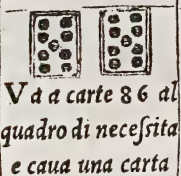 Vd a carte 86 al
quadro di neceſsita
e caua una carta